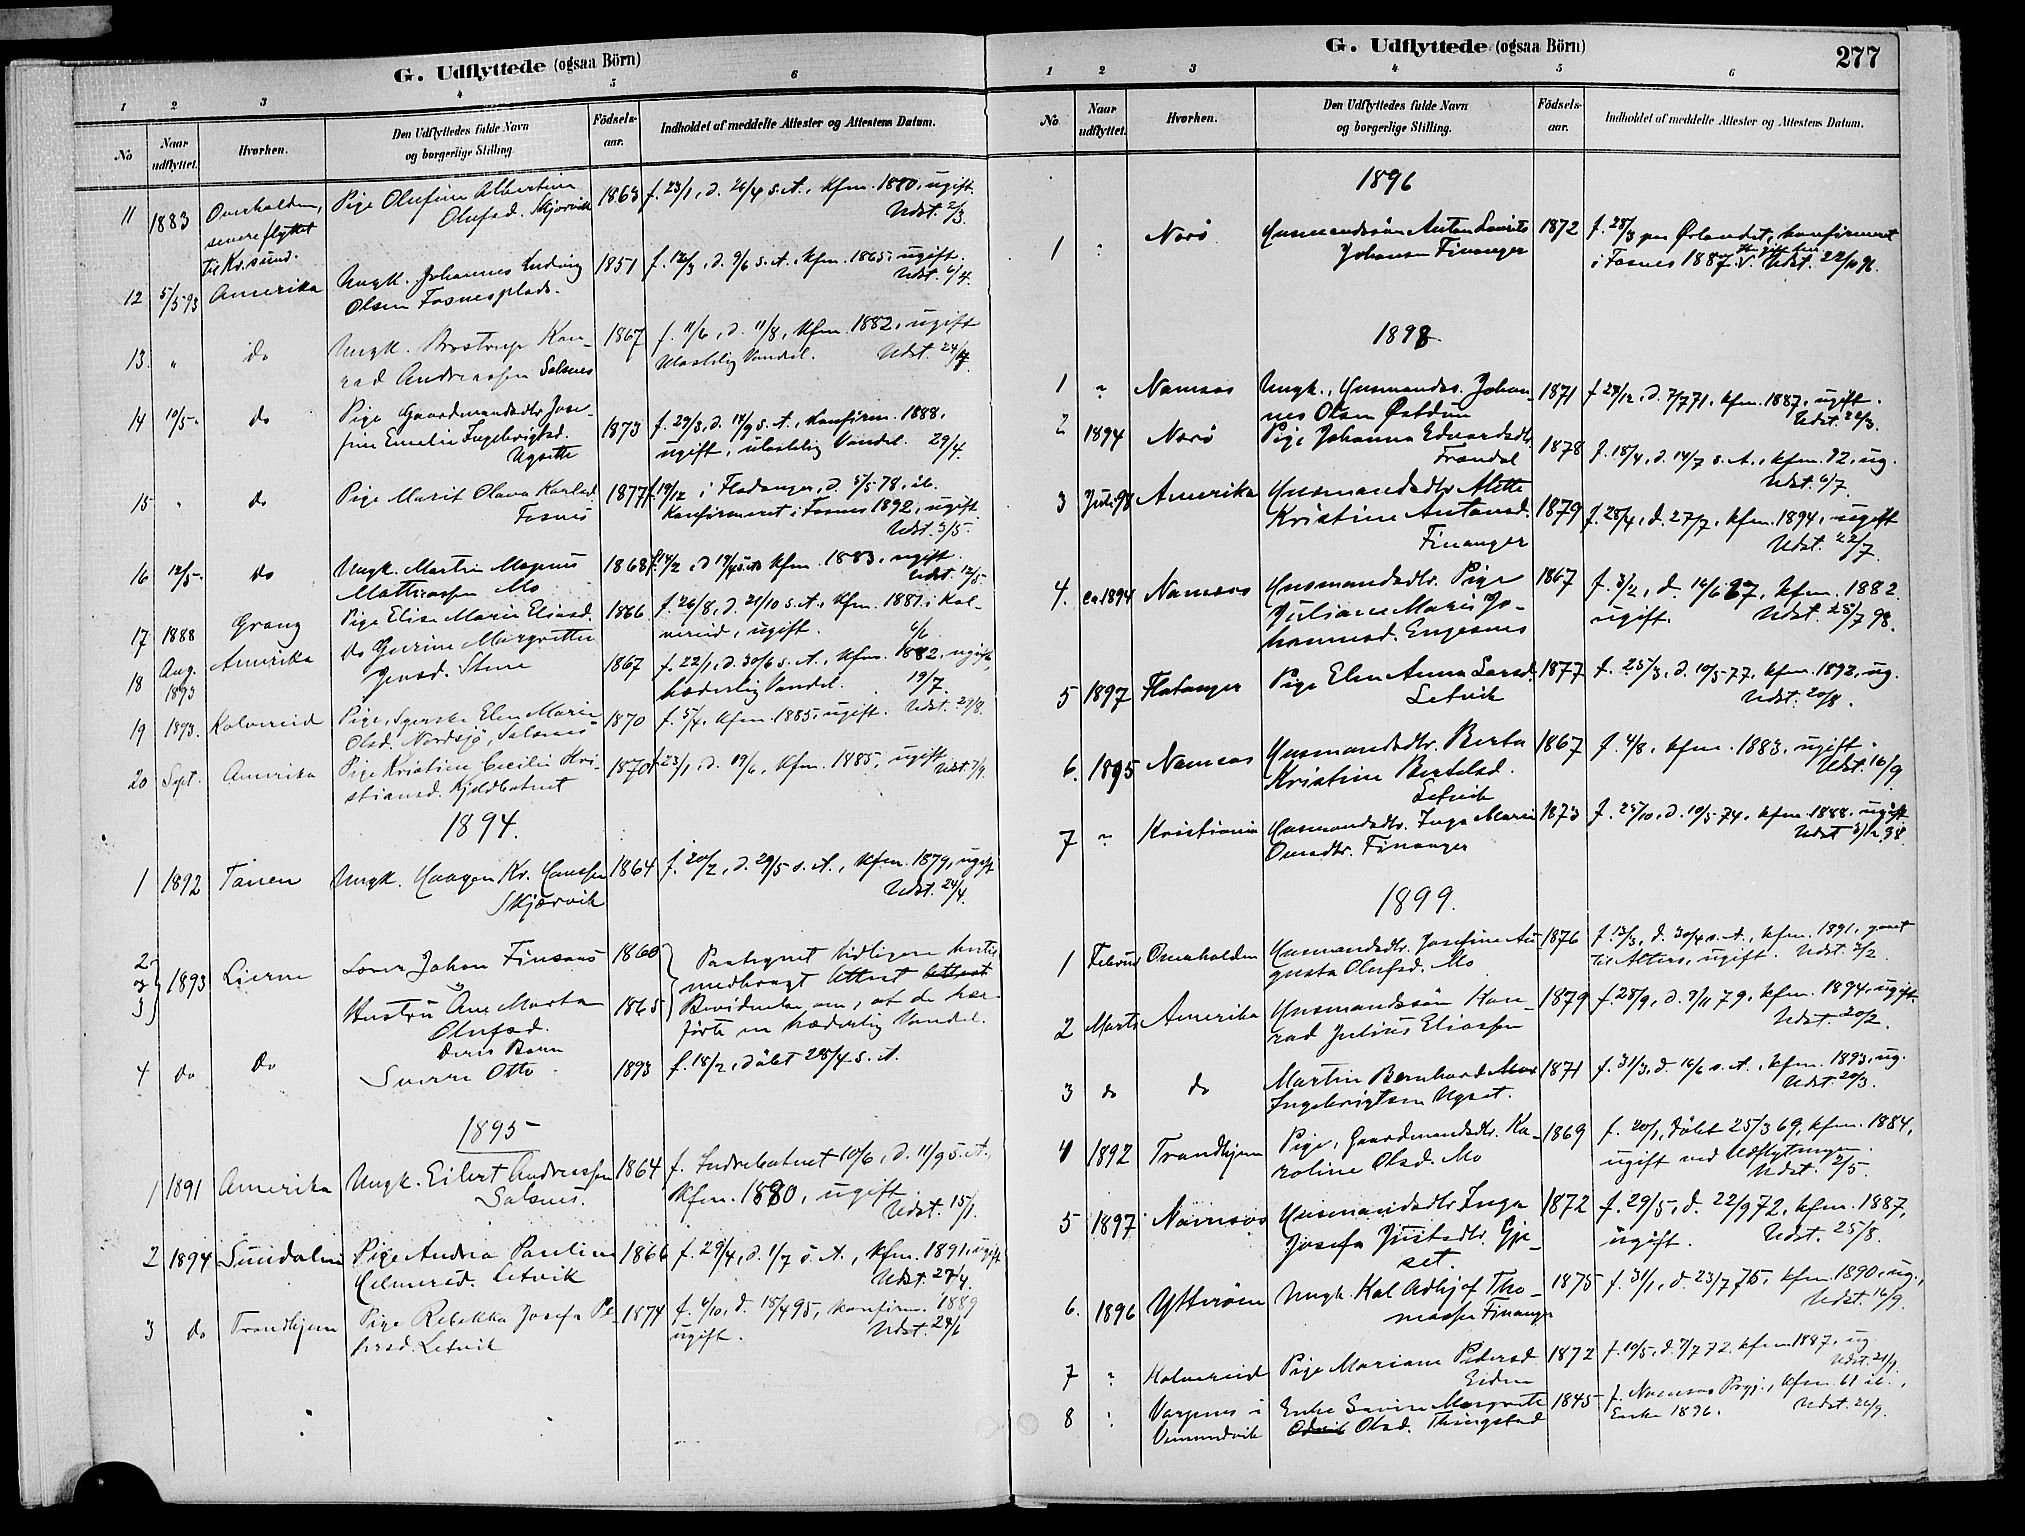 G. Udflyttede (ogsaa Börn)
1 2 3 4 5 6
No
Naar udflyttet.
Hvorhen.
Den Udflyttedes fulde Navn og borgerlige Stilling.
Födsels-aar.
Indholdet af meddelte Attester og Attestens Datum.
11 1883 Overhalden, Pige Olufine Albertine 1863 f. 23/1, d. 26/4 s. A., kfm. 1880, ugift.
senere flyttet Olufsd. Skjærvik Udst. 2/3.
til Kr.sund.
12 5/5 93 Amerika Ungk. Johannes Ludvig 1851 f. 12/3, d. 9/6 s. A., kfm. 1865, ugift.
Olsen Fosnesplads. Udst. 6/4.
13 " do Ungk. Brostrup Kon- 1867 f. 11/6, d. 11/8, kfm. 1882, ugift
rad Andreassen Salsnes Ulastelig Vandel. Udst. 24/4.
14 10/5 do Pige Gaardmandsdtr. Jose- 1873 f. 29/3, d. 14/9 s. A., konfirm. 1888,
fine Emelie Ingebrigtsd. ugift, ulastelig Vandel. 29/4.
Ugsette
15 " do Pige Marit Olava Karlsd. 1877 f. 19/12 i Fladanger, d. 5/5 78, ib.
Fosnes Konfirmeret i Fosnes 1892, ugift
Udst. 3/5.
16 12/5 do Ungk. Martin Magnus 1868 f. 14/2, d. 19/4 s. A. kfm. 1883, ugift.
Mattiassen Mo Udst. 12/5.
17 1888 Grong Pige Elise Marie Eliasd. 1866 f. 26/8, d. 21/10 s. A., kfm. 1881 i Kol-
vereid, ugift. 6/6.
18 Aug. 1893 Amerika do Gurine Margrette 1867 f. 22/1, d. 30/6 s. A., kfm. 1882, ugift,
Jensd. Stene hæderlig Vandel. 19/7.
19 1893. Kolvereid Pige, Syerske Elen Marie 1870 f. 5/4, kfm. 1885, ugift. Udst. 29/8.
Olsd. Nordsjö, Salsnes
20 Sept. Amerika Pige Kristine Cecilie Kri- 1870 f. 23/1, d. 19/6, kfm. 1885, ugift Udst. 7/9.
stiansd. Kjeldbotnet
1894.
1 1892 Tanen Ungk. Haagen Kr. Hanssen 1864 f. 20/2, d. 29/5 s. A., kfm. 1879, ugift
Skjærvik Udst. 24/4.
2 og 3 1893 Lierne Lærer Johan Finsaas 1860 Paategnet tidligere hertil
medbragt Attest
Hustru Ane Marta 1865 Bevidnelse om, at de har
Olufsd. förte en hæderlig Vandel.
deres Barn
4 do do Sverre Otto 1893 f. 18/2, döbt 28/4 s. A.
1895
1 1891 Amerika Ungk. Eilert Andreassen 1864 f. Indrebotnet 10/6, d. 11/9 s. A.,
Salsnes. kfm. 1880, ugift
Udst. 15/1.
2 1894 Sundalen Pige Andrea Pauline 1866 f. 29/4, d. 1/7 s. A., kfm. 1891, ugift
Helmersd. Letvik Udst. 27/4.
3 do Trondhjem Pige Rebekka Josefa Pe- 1874 f. 6/10, d. 18/4 95, konfirm. 1889
dersd. Letvik ugift. Udst. 24/6
G. Udflyttede (ogsaa Börn) 277
1 2 3 4 5 6
No
Naar udflyttet.
Hvorhen.
Den Udflyttedes fulde Navn og borgerlige Stilling.
Födsels-aar.
Indholdet af meddelte Attester og Attestens Datum.
1896
1 " Nærö Husmandssön Anton Laurits 1872 f. 28/3 paa Ørlandet, konfirmeret
Johansen Finanger i Fosnes 1887. Udst. 22/10 96.
1898.
1 " Namsos Ungk., Husmands. Johan- 1871 f. 29/12, d. 7/7 71, kfm. 1887, ugift.
nes Olsen Østduun Udst. 22/3.
2 1894 Nærö Pige Johanna Edvardsdtr. 1878 f. 18/4, d. 14/7 s. A., kfm. 92, ug.
Frandal Udst. 6/7.
3 Juli 98 Amerika Husmandsdtr. Alette 1879 f. 28/4, d. 27/7, kfm. 1894, ugift
Kristine Antonsd. Udst. 22/7.
Finanger
4. ca 1894 Namsos Husmandsdtr. Pige 1867 f. 3/2, d. 16/6 67, kfm. 1882
Juliane Marie Jo- ugift. Udst. 28/7 98.
hannesd. Engesnes
5 1897 Flatanger Pige Elen Anna Larsd. 1877 f. 25/3, d. 10/5 77, kfm. 1892, ug.
Letvik Udst. 20/8.
6 1895 Namsos Husmandsdtr. Berta 1867 f. 4/8, kfm. 1883, ugift.
Kristine Bertelsd. Udst. 16/9
Letvik
7 " Kristiania Husmandsdtr. Inga Marie 1873 f. 25/10, d. 10/5 74, kfm. 1888, ugift
Onsadtr. Finanger Udst 3/12 98
1899.
1 Februar Overhalden Husmandsdtr. Josefine Au- 1876 f. 13/3, d. 30/4 s. A., kfm. 1891, gaaet
gusta Olufsd. Mo til Alters, ugift. Udst. 3/2.
2 Marts Amerika Husmandssön Kon- 1879 f. 28/9, d. 9/11 79, kfm. 1894, ugift
rad Julius Eliassen Udst. 20/2.
3 do do Martin Bernhard 1871 f. 31/3, d. 16/6 s. A., kfm. 1893, ug.
Ingebrigtsen Ugset. Udst. 20/3.
4 1892 Trondhjem Pige, Gaardmandsdtr. Ka- 1869 f. 20/1, döbt 25/3 69, kfm. 1884,
roline Olsd. Mo ugift ved Udflytningen.
Udst. 2/5.
5 1897 Namsos Husmandsdtr Inga 1872 f. 29/5, d. 22/9 72, kfm. 1887,
Josefa Justsdtr. Gje- ugift. Udst. 25/8.
set.
6. 1896 Ytterøen Ungk. Kal Adhjef Tho- 1875 f. 31/1, d. 23/7 75, kfm. 1890, ug.,
massen Finanger Udst. 16/9.
7 " Kolvereid Pige Mariane Pedersd 1872 f. 10/5, d. 7/7 72, kfm. 1887, ug
Eiden Udst. 21/9
8 " Vargenes i Enke Gurine Margrete 1845 f. Namsos Prgj., kfm. 61 ib.,
Vemundvik Olsd. Thingstad Enke 1896. Udst. 26/9.